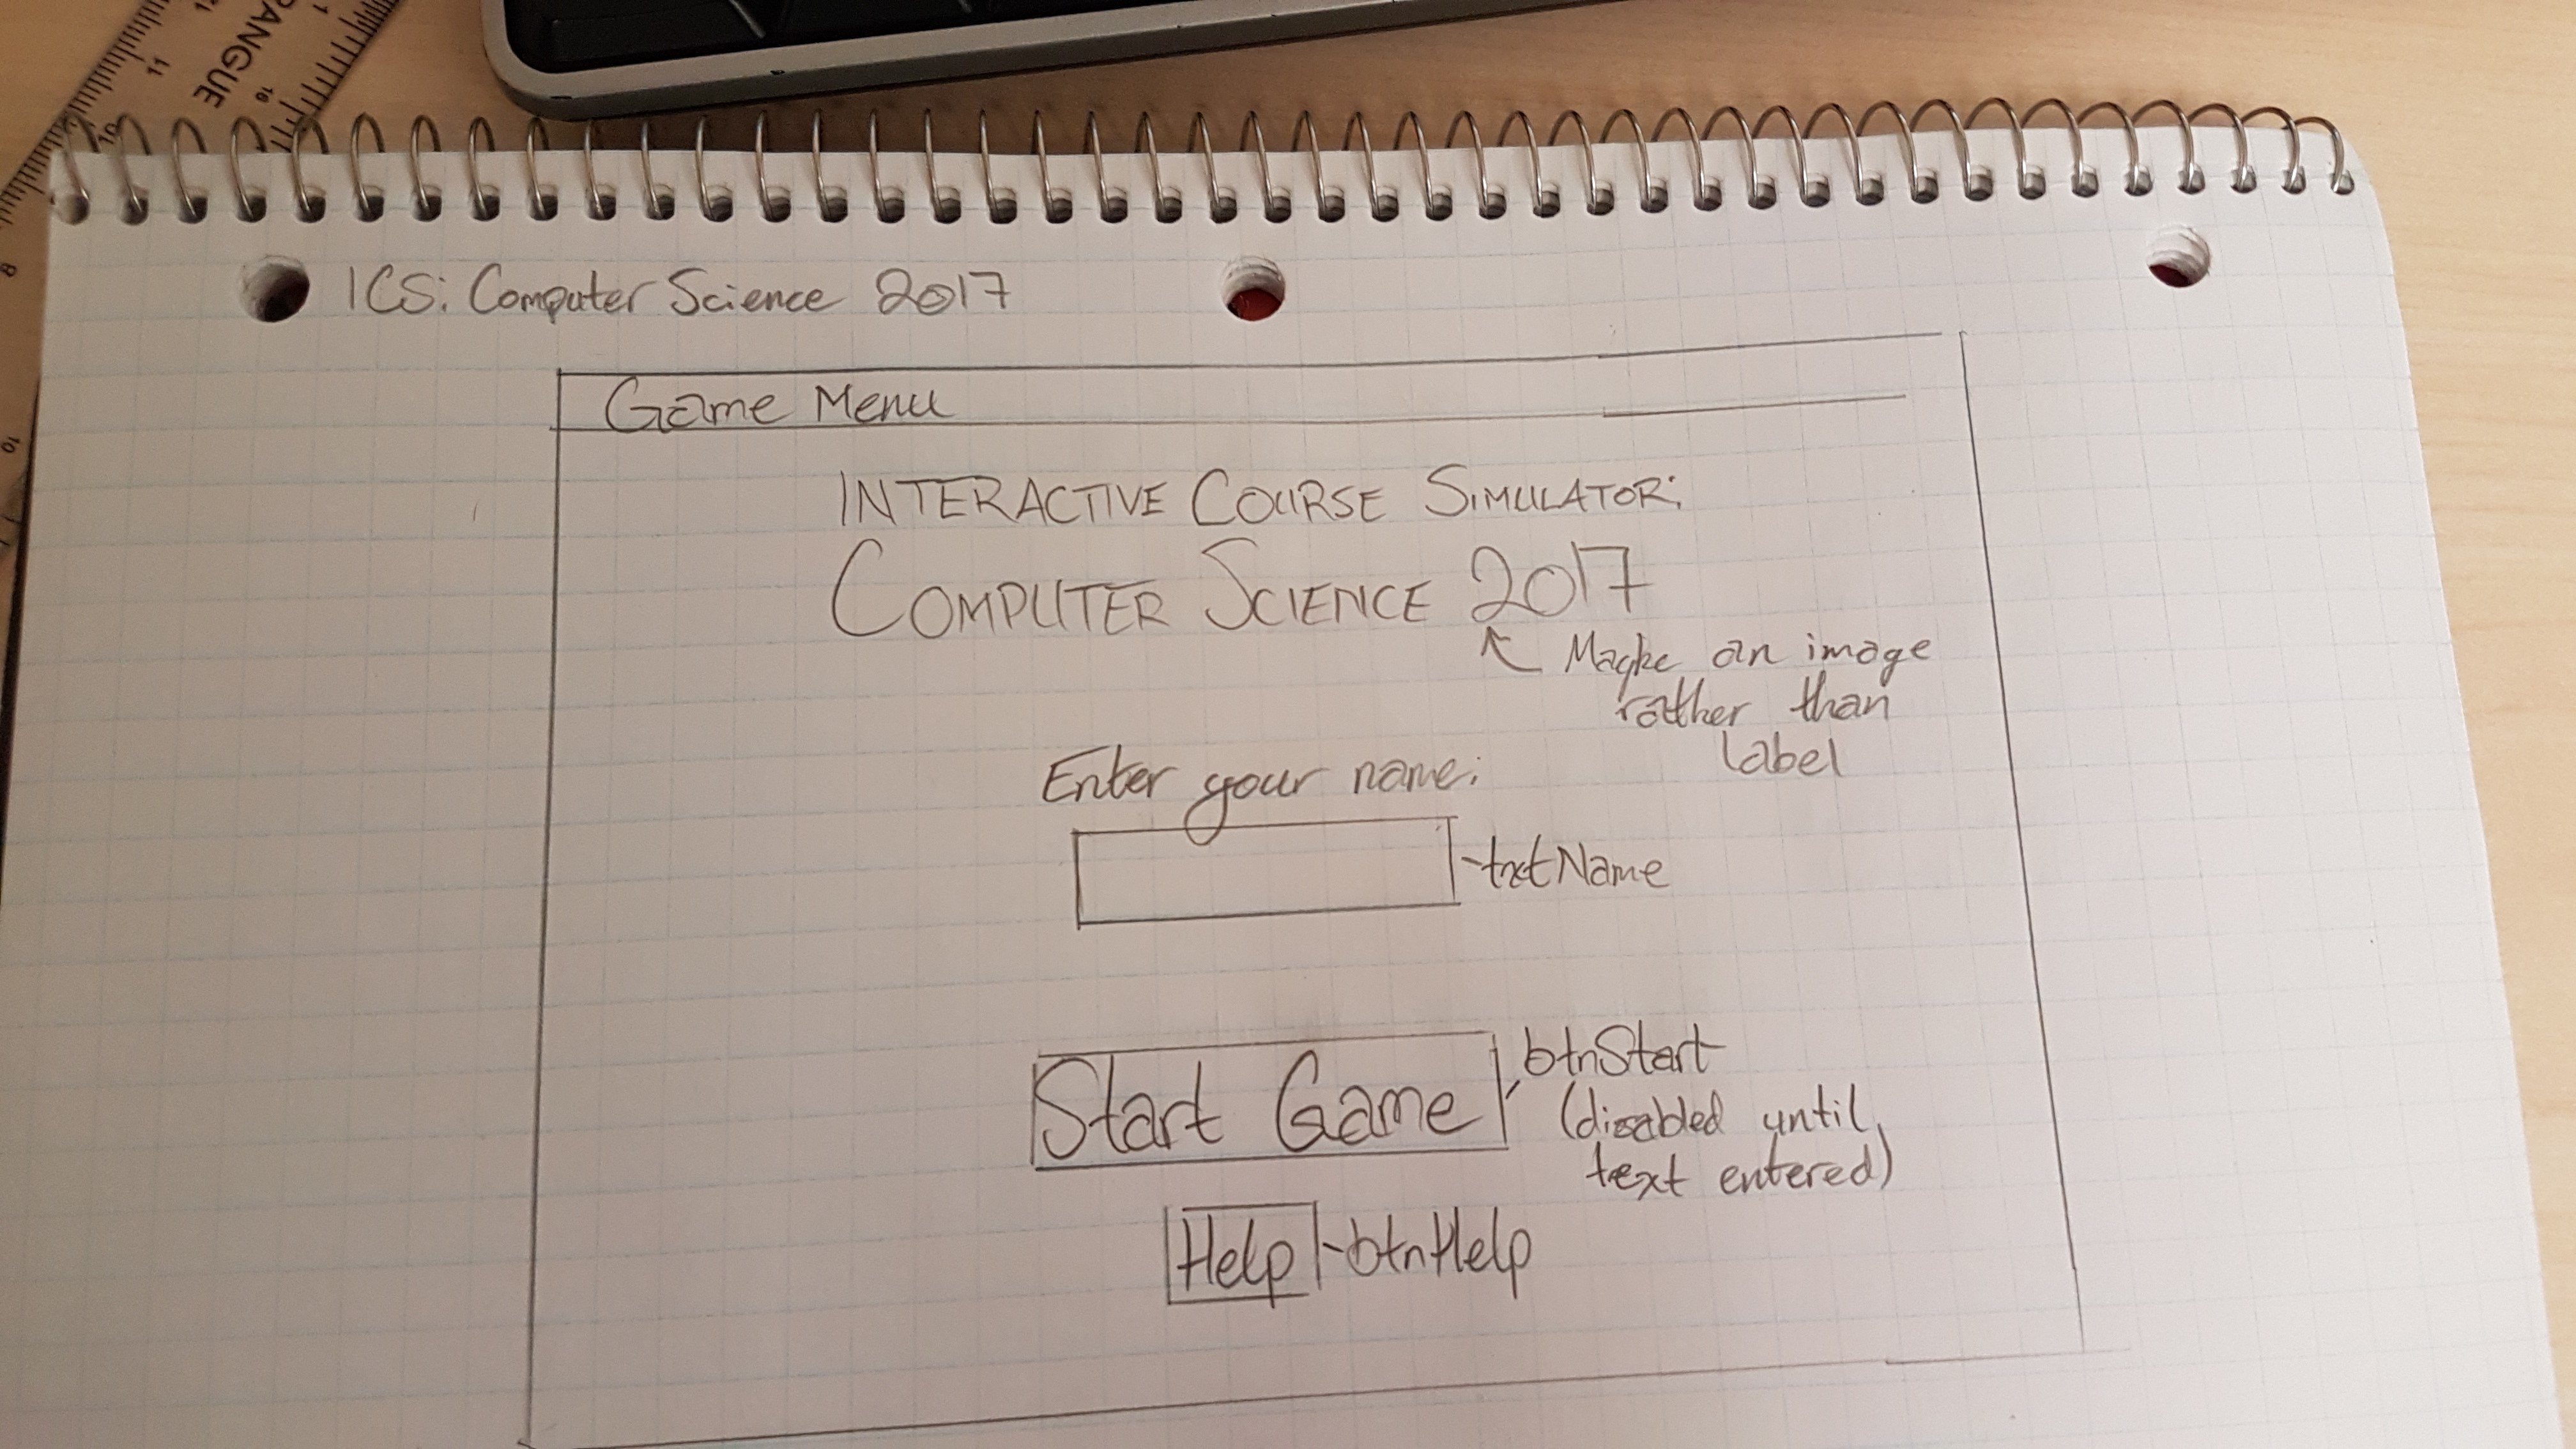 ANGUE
11
16
10
8
ICS: Computer Science 2017
Game Menu
INTERACTIVE COURSE SIMULATOR:
COMPUTER SCIENCE 2017
Maybe an image
rather than
label
Enter your name:
txtName
btnStart
Start Game
(disabled until
text entered)
Help
btnHelp